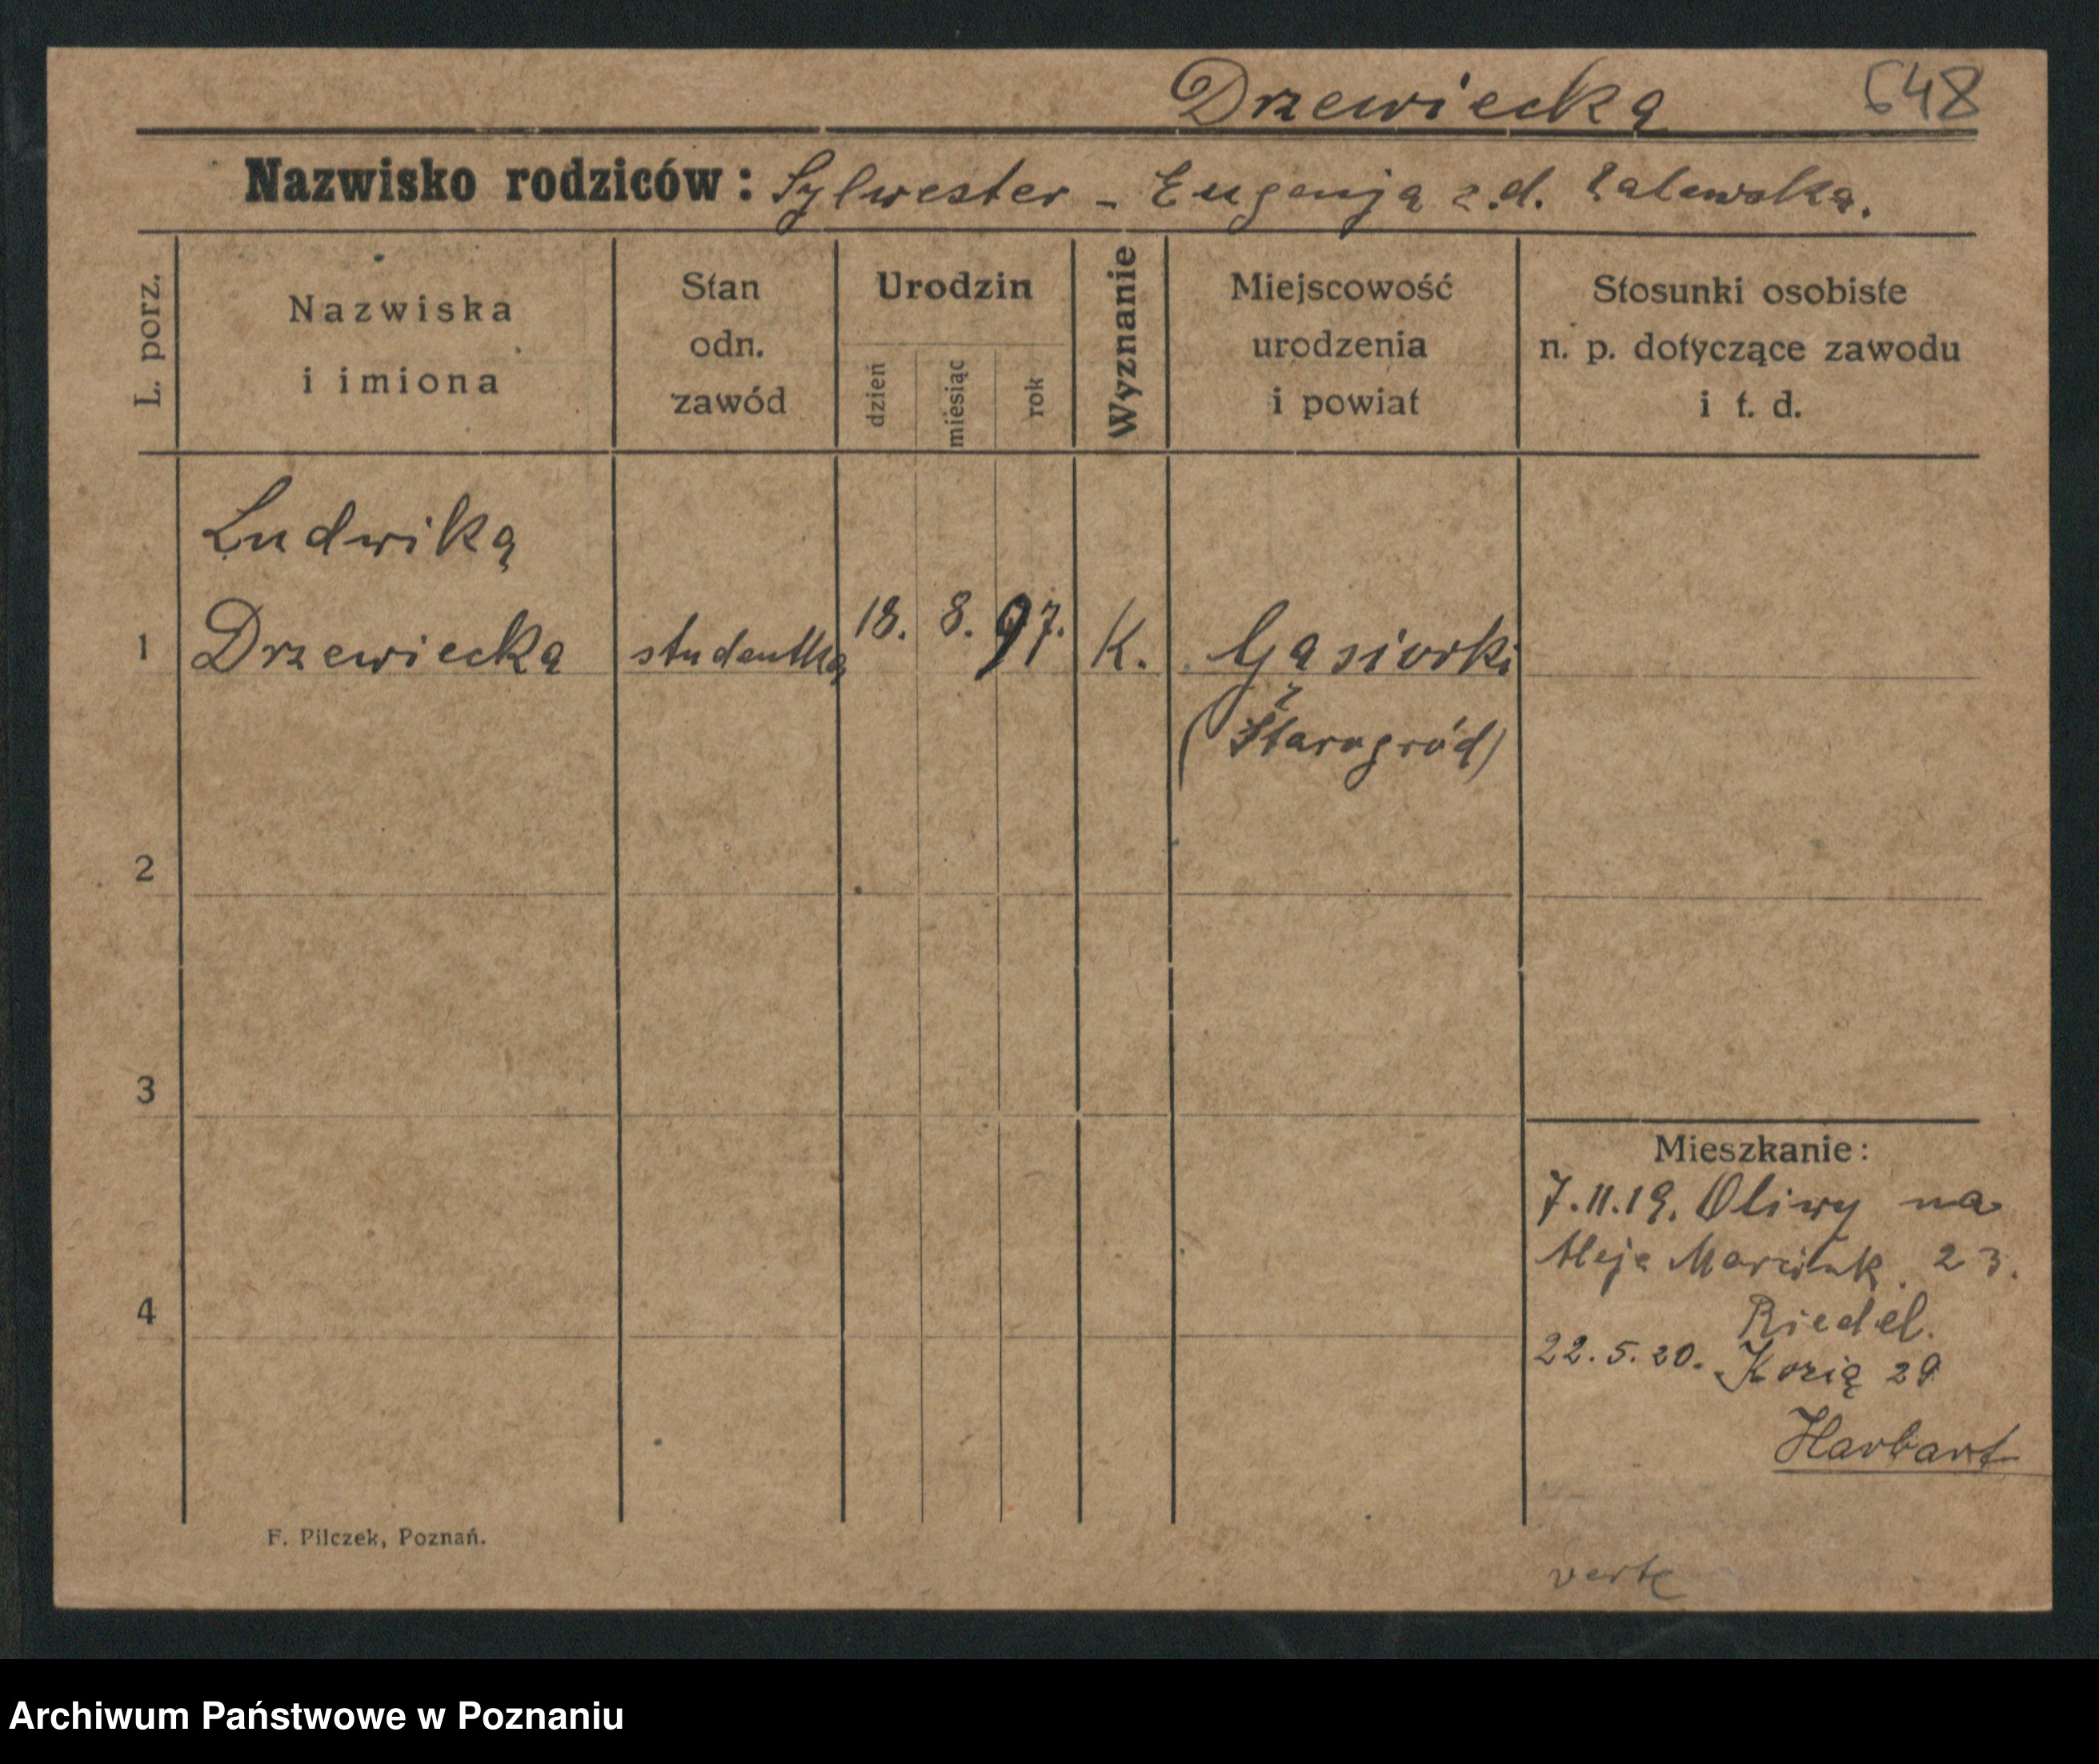 Drzewiecka 648
Nazwisko rodziców: Sylwester - Eugenja z.d. Zalewska.
L. porz.
Nazwiska
i imiona
Stan
odn.
zawód
Urodzin
dzień
miesiąc
rok
Wyznanie
Miejscowość
urodzenia
i powiat
Stosunki osobiste
n. p. dotyczące zawodu
i t. d.
Ludwika
1 Drzewiecka studentka 18. 8. 97. K. Gąsiorki
(Starogród)
2
3
4
Mieszkanie:
7.11.19. Oliwy na
Aleje Marcink. 23.
Riedel.
22.5.20. Kozia 29
Harbart
F. Pilczek, Poznań.
verte
Archiwum Państwowe w Poznaniu